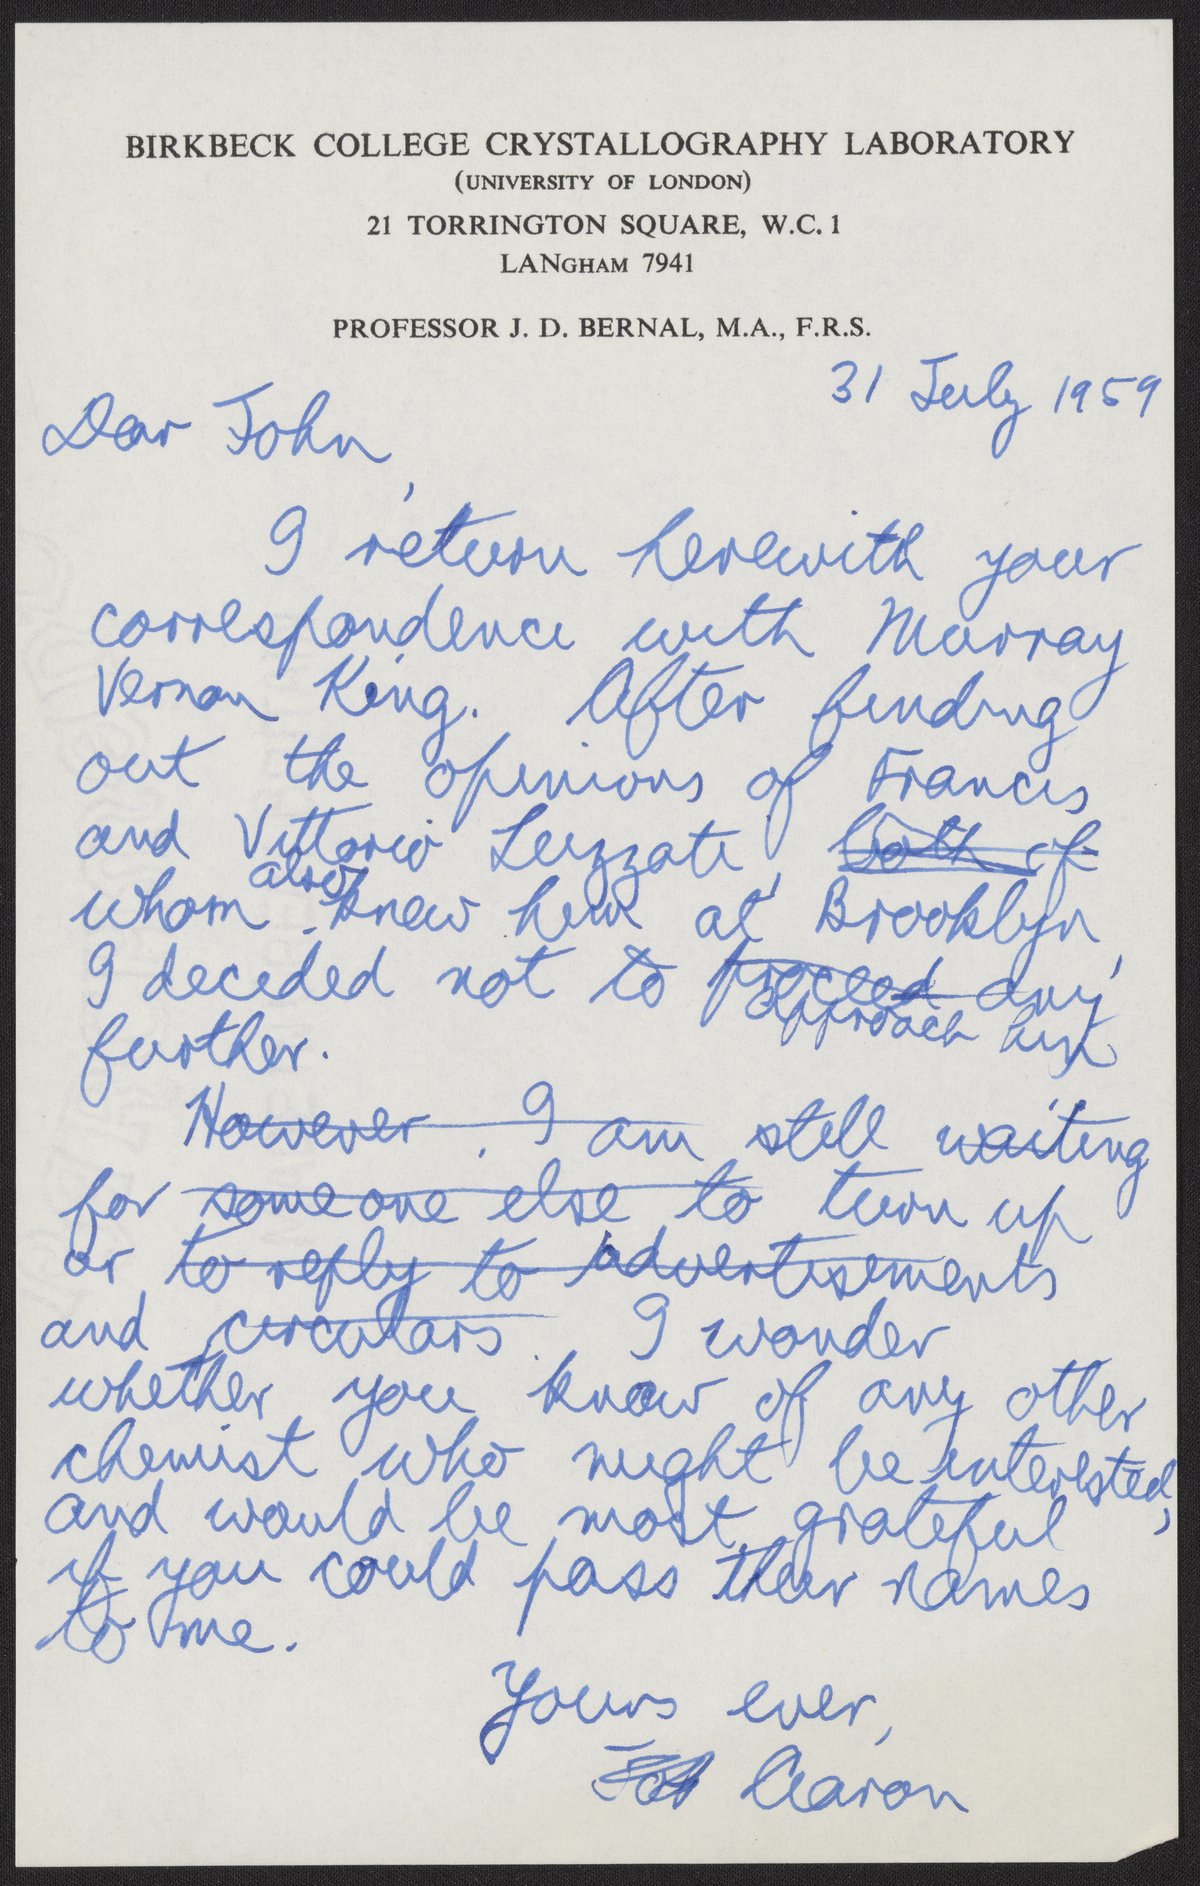 BIRKBECK COLLEGE CRYSTALLOGRAPHY LABORATORY
(UNIVERSITY OF LONDON)
21 TORRINGTON SQUARE, W.C.1
LANGHAM 7941
PROFESSOR J. D. BERNAL, M.A., F.R.S.
31 July 1959
Dear John,
I return herewith your
correspondence with Murray
Vernon King. After finding
out the opinions of Francis
and Vittorio Luzzati, both of
whom also knew him at Brooklyn,
I decided not to proceed any
approach him
further.
However, I am still waiting
for someone else to turn up
or to reply to advertisements
and circulars. I wonder
whether you know of any other
chemist who might be interested,
and would be most grateful
if you could pass their names
to me.
Yours ever,
Aaron